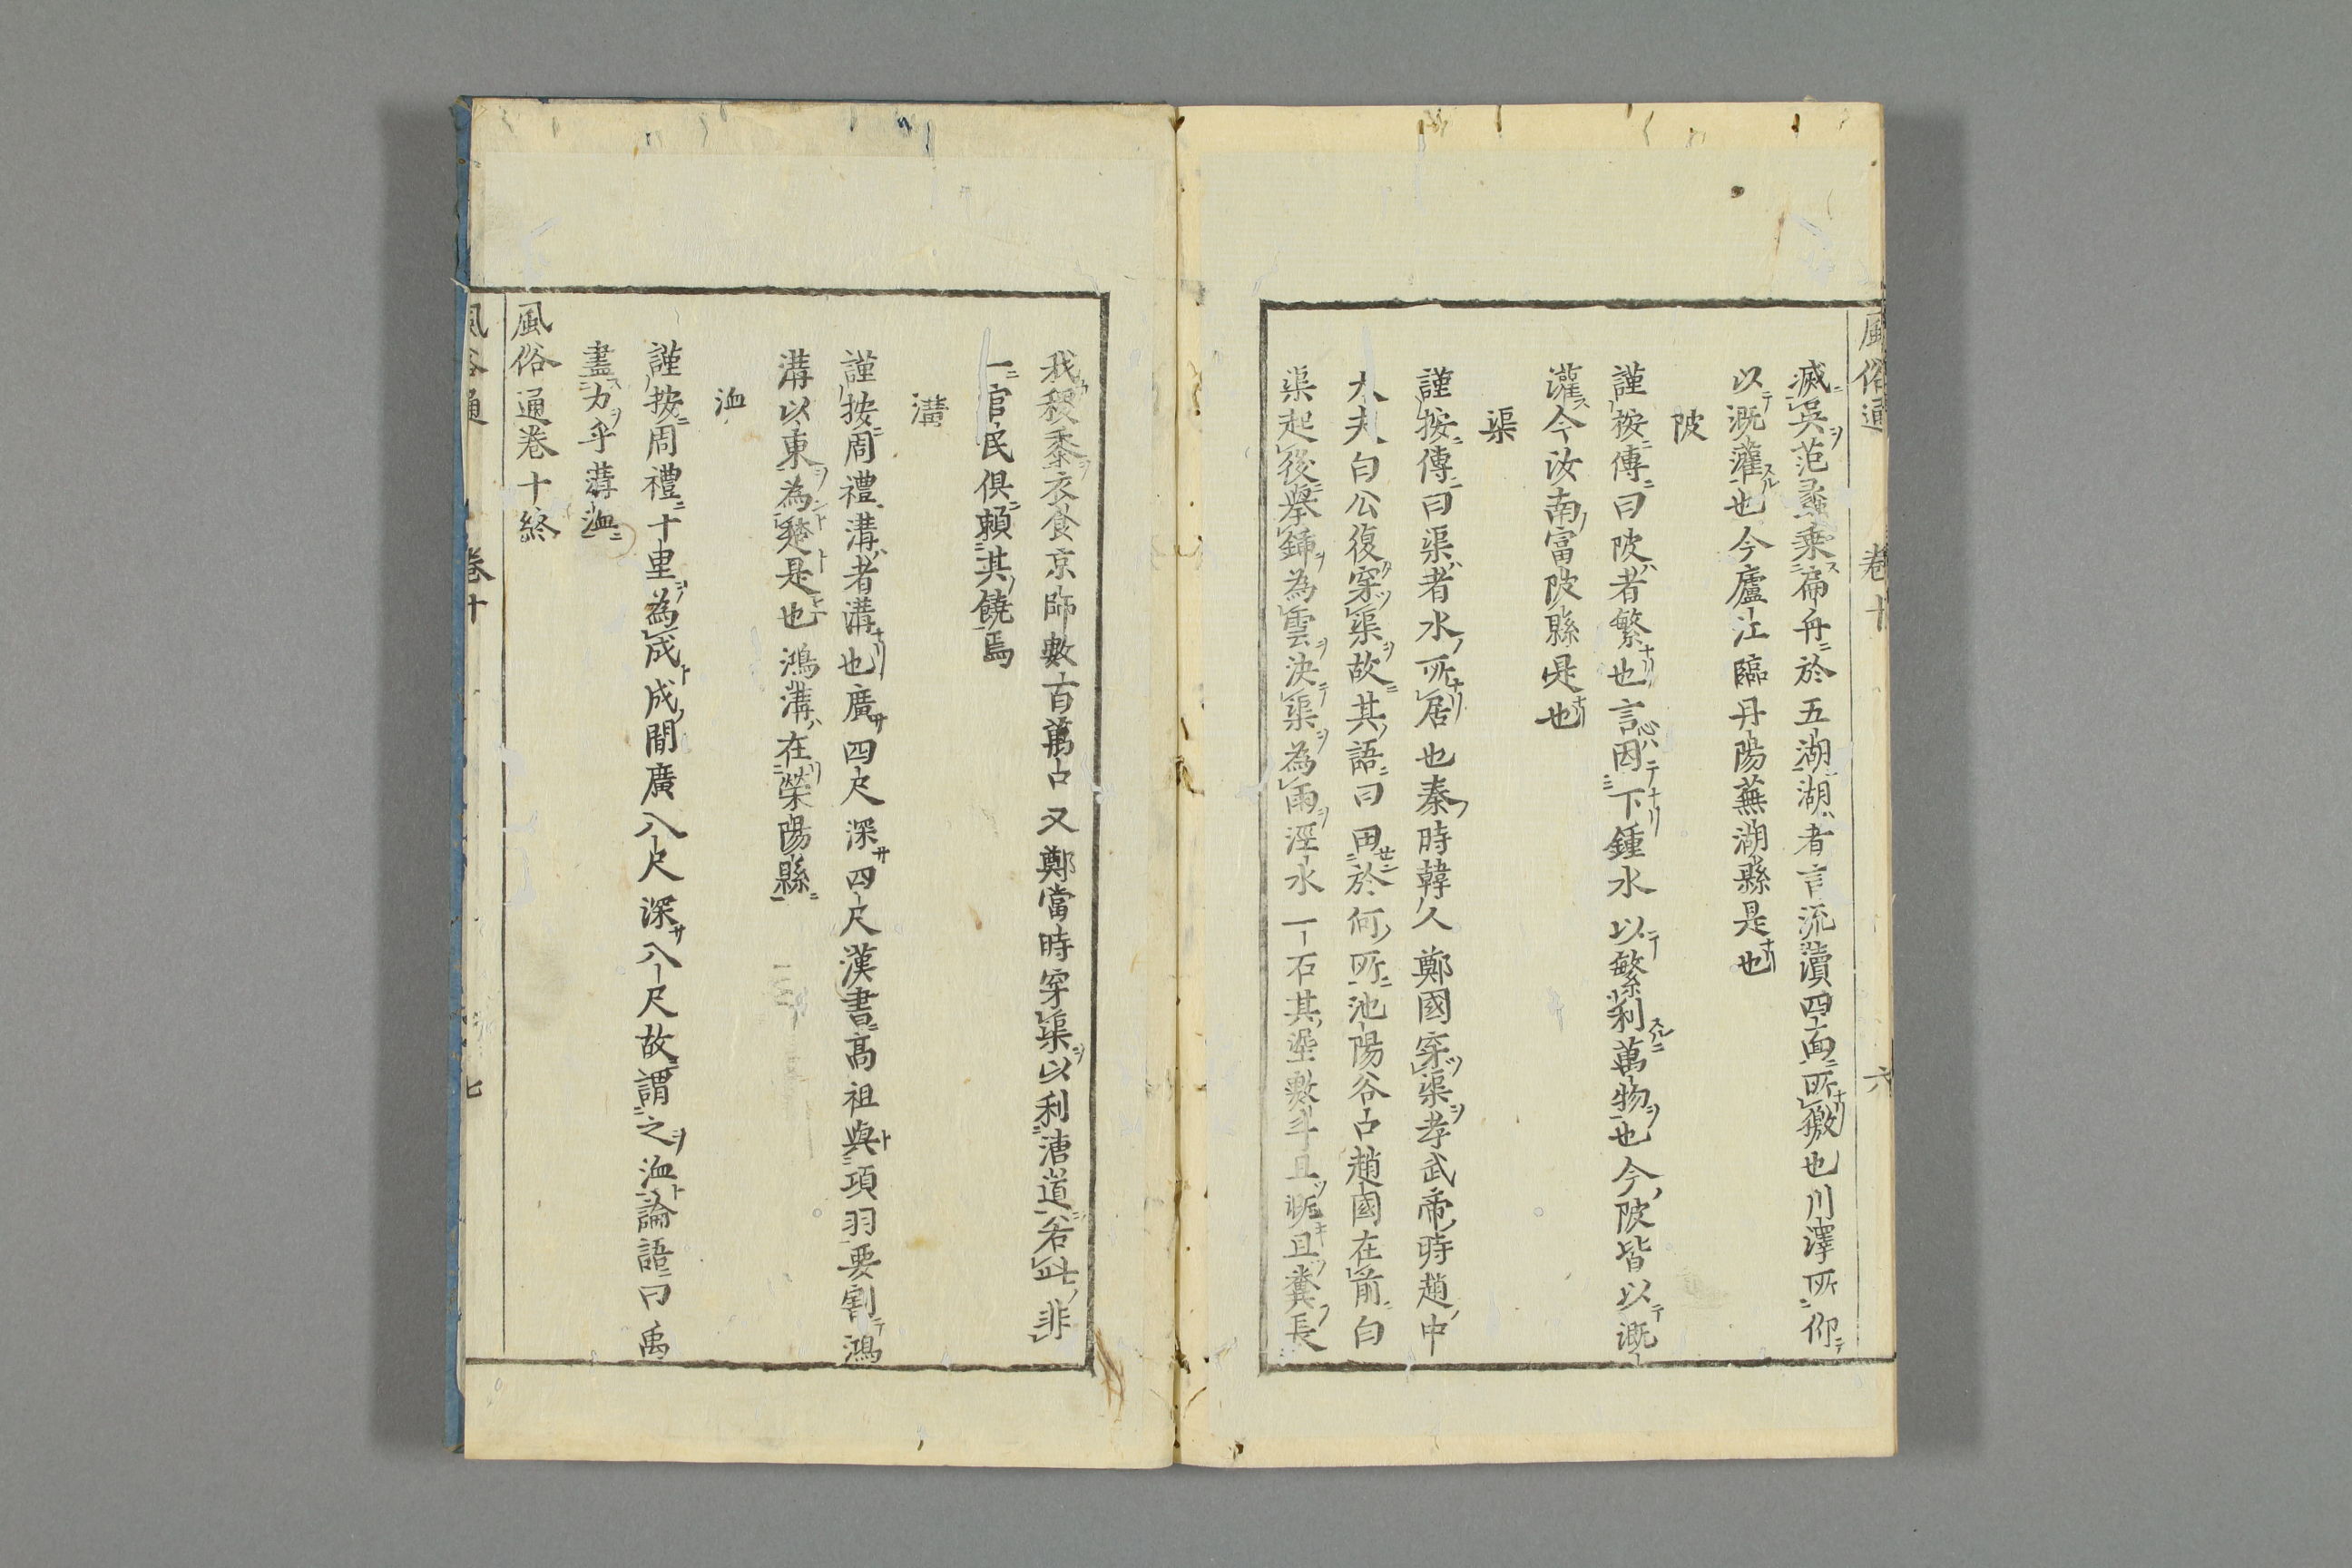 風俗通 卷十 六
滅吳范蠡乗扁舟於五湖湖者言流瀆四面所㺜也川澤所仰
以漑灌也今廬江臨丹陽蕪湖縣是也
陂
謹按傳曰陂者繁也言因下鍾水以繁利萬物也今陂皆以漑
灌今汝南富陂縣是也
渠
謹按傳曰渠者水所居也秦時韓人鄭國穿渠孝武帝時趙中
大夫白公復穿渠故其語曰田於何所池陽谷口趙國在前白
渠起後擧鍤為雲決渠為雨涇水一石其埿數斗且既且糞長
我稷黍衣食京師數百萬口又鄭當時穿渠以利漕道若此非
一官民俱頼其饒焉
溝
謹按周禮溝者溝也廣四尺深四尺漢書高祖與項羽要割鴻
溝以東為楚是也鴻溝在榮陽縣
洫
謹按周禮十里為成成間廣八尺深八尺故謂之洫論語曰禹
盡力乎溝洫
風俗通卷十終
風俗通 卷十 七